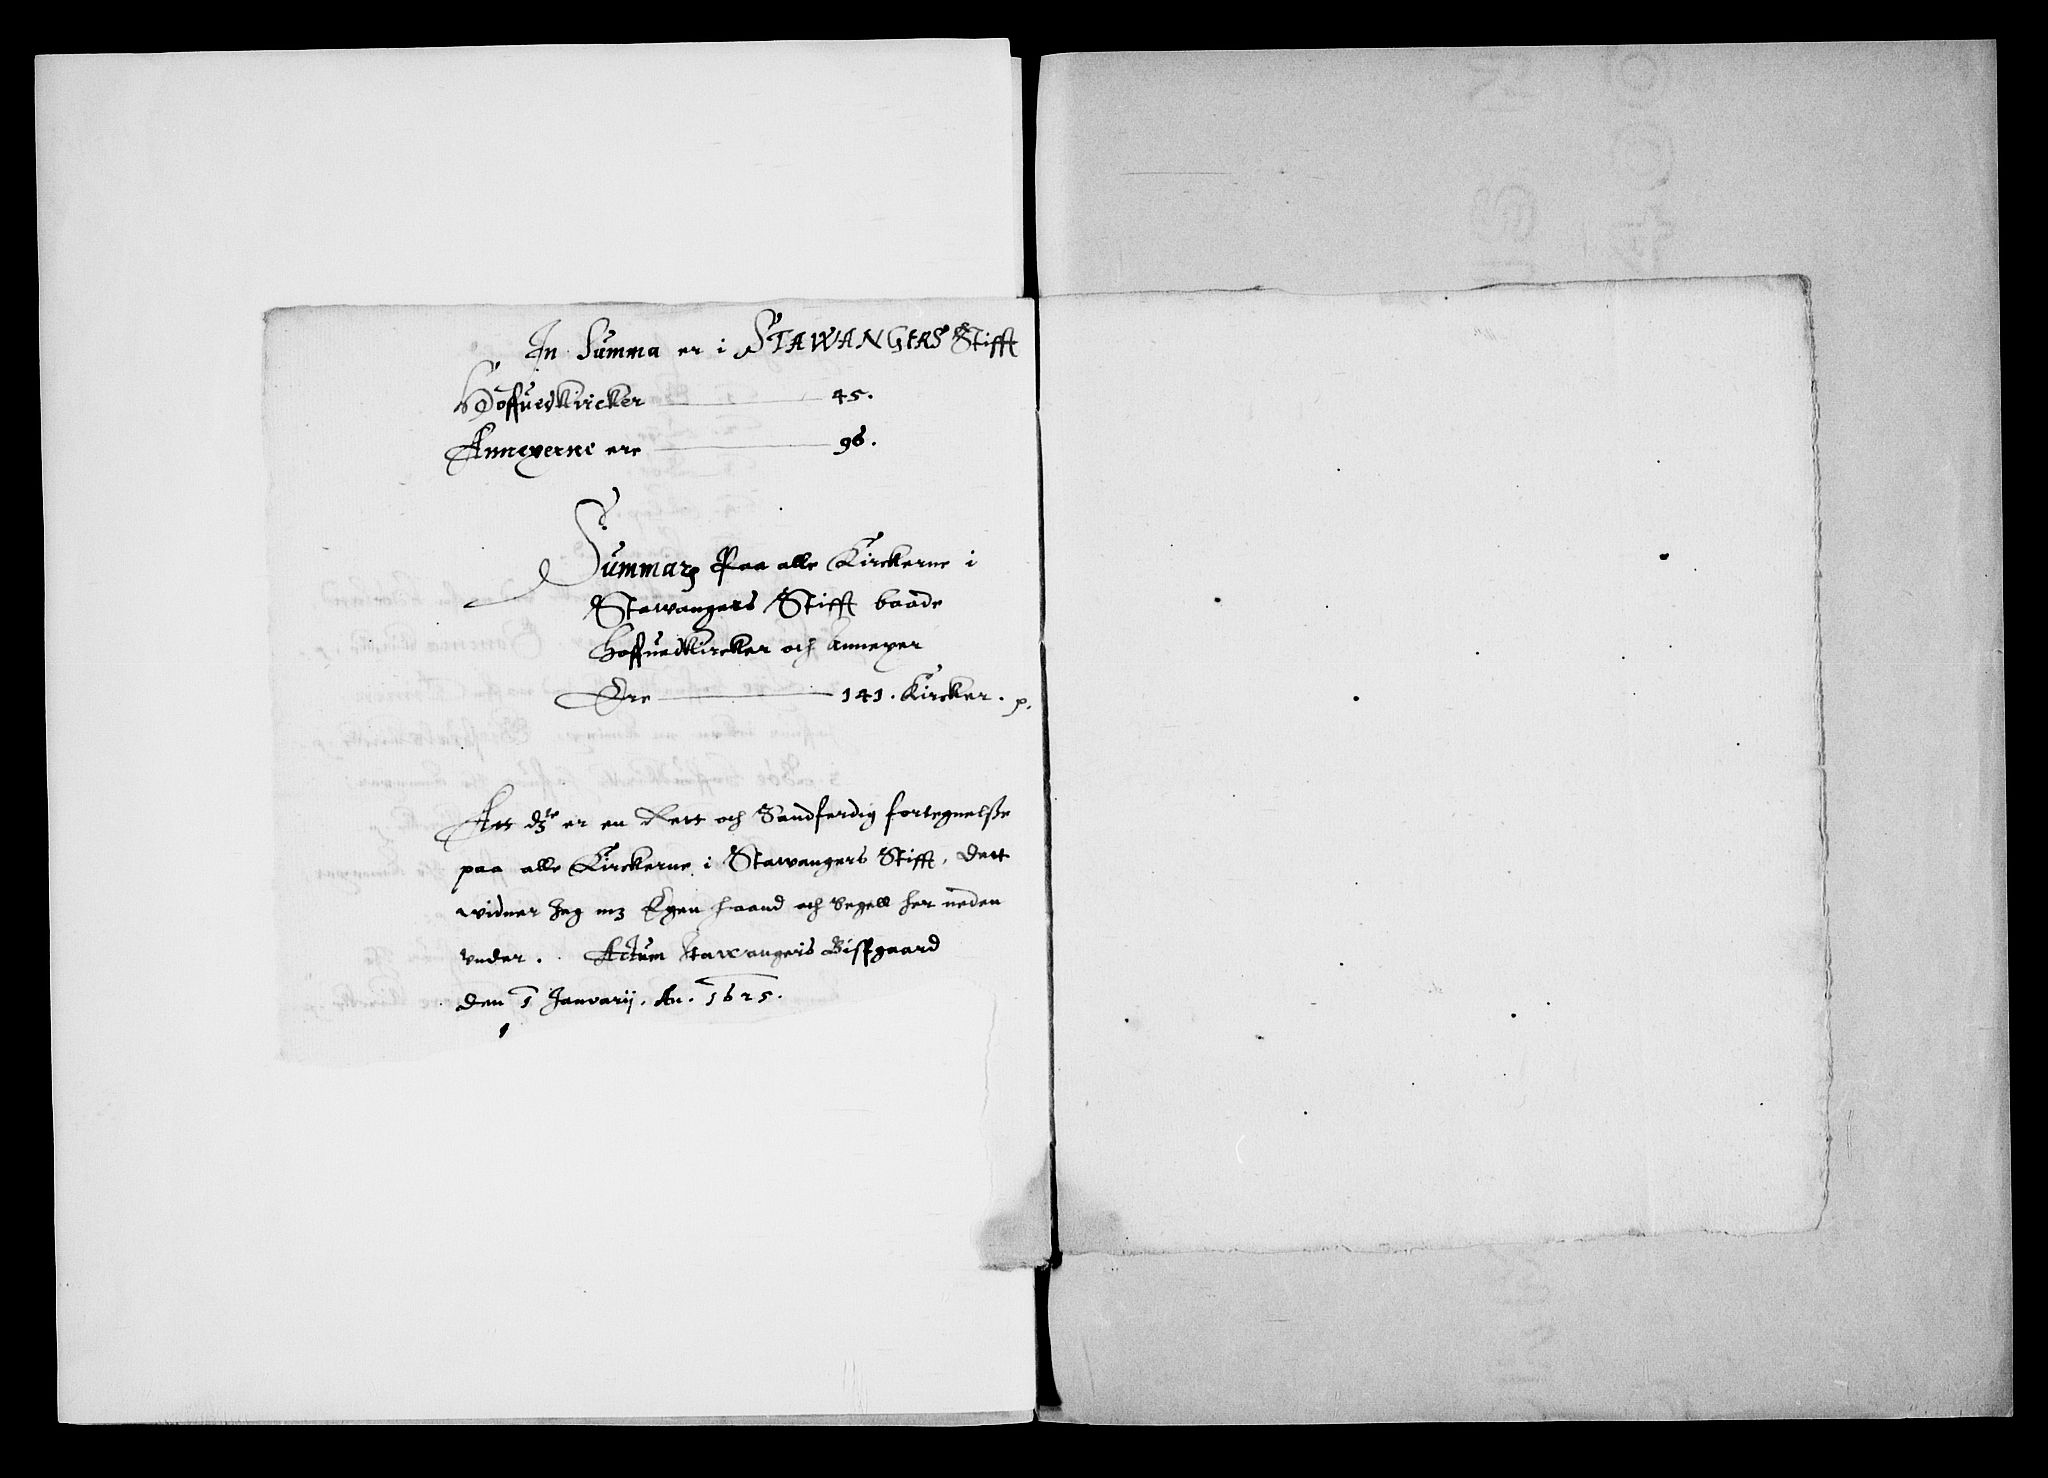 In Summa er i STAWANGERS Stifft
Hoffuedkircker 45.
Annexerne ere 96.
Summarʒ Paa alle Kirckerne i
Stawangers Stifft baade
Hoffuedkircker och Annexer
Ere 141. Kircker. p.
Att dʒte er en Rett och Sandferdig fortegnelsße
paa alle Kirckerne i Stawangers Stifft, dett
widner Jeg mʒ Egen haand och Segell her neden
vnder. Actum Stawangers Bispgaard
den 1 Januarij. An. 1625.